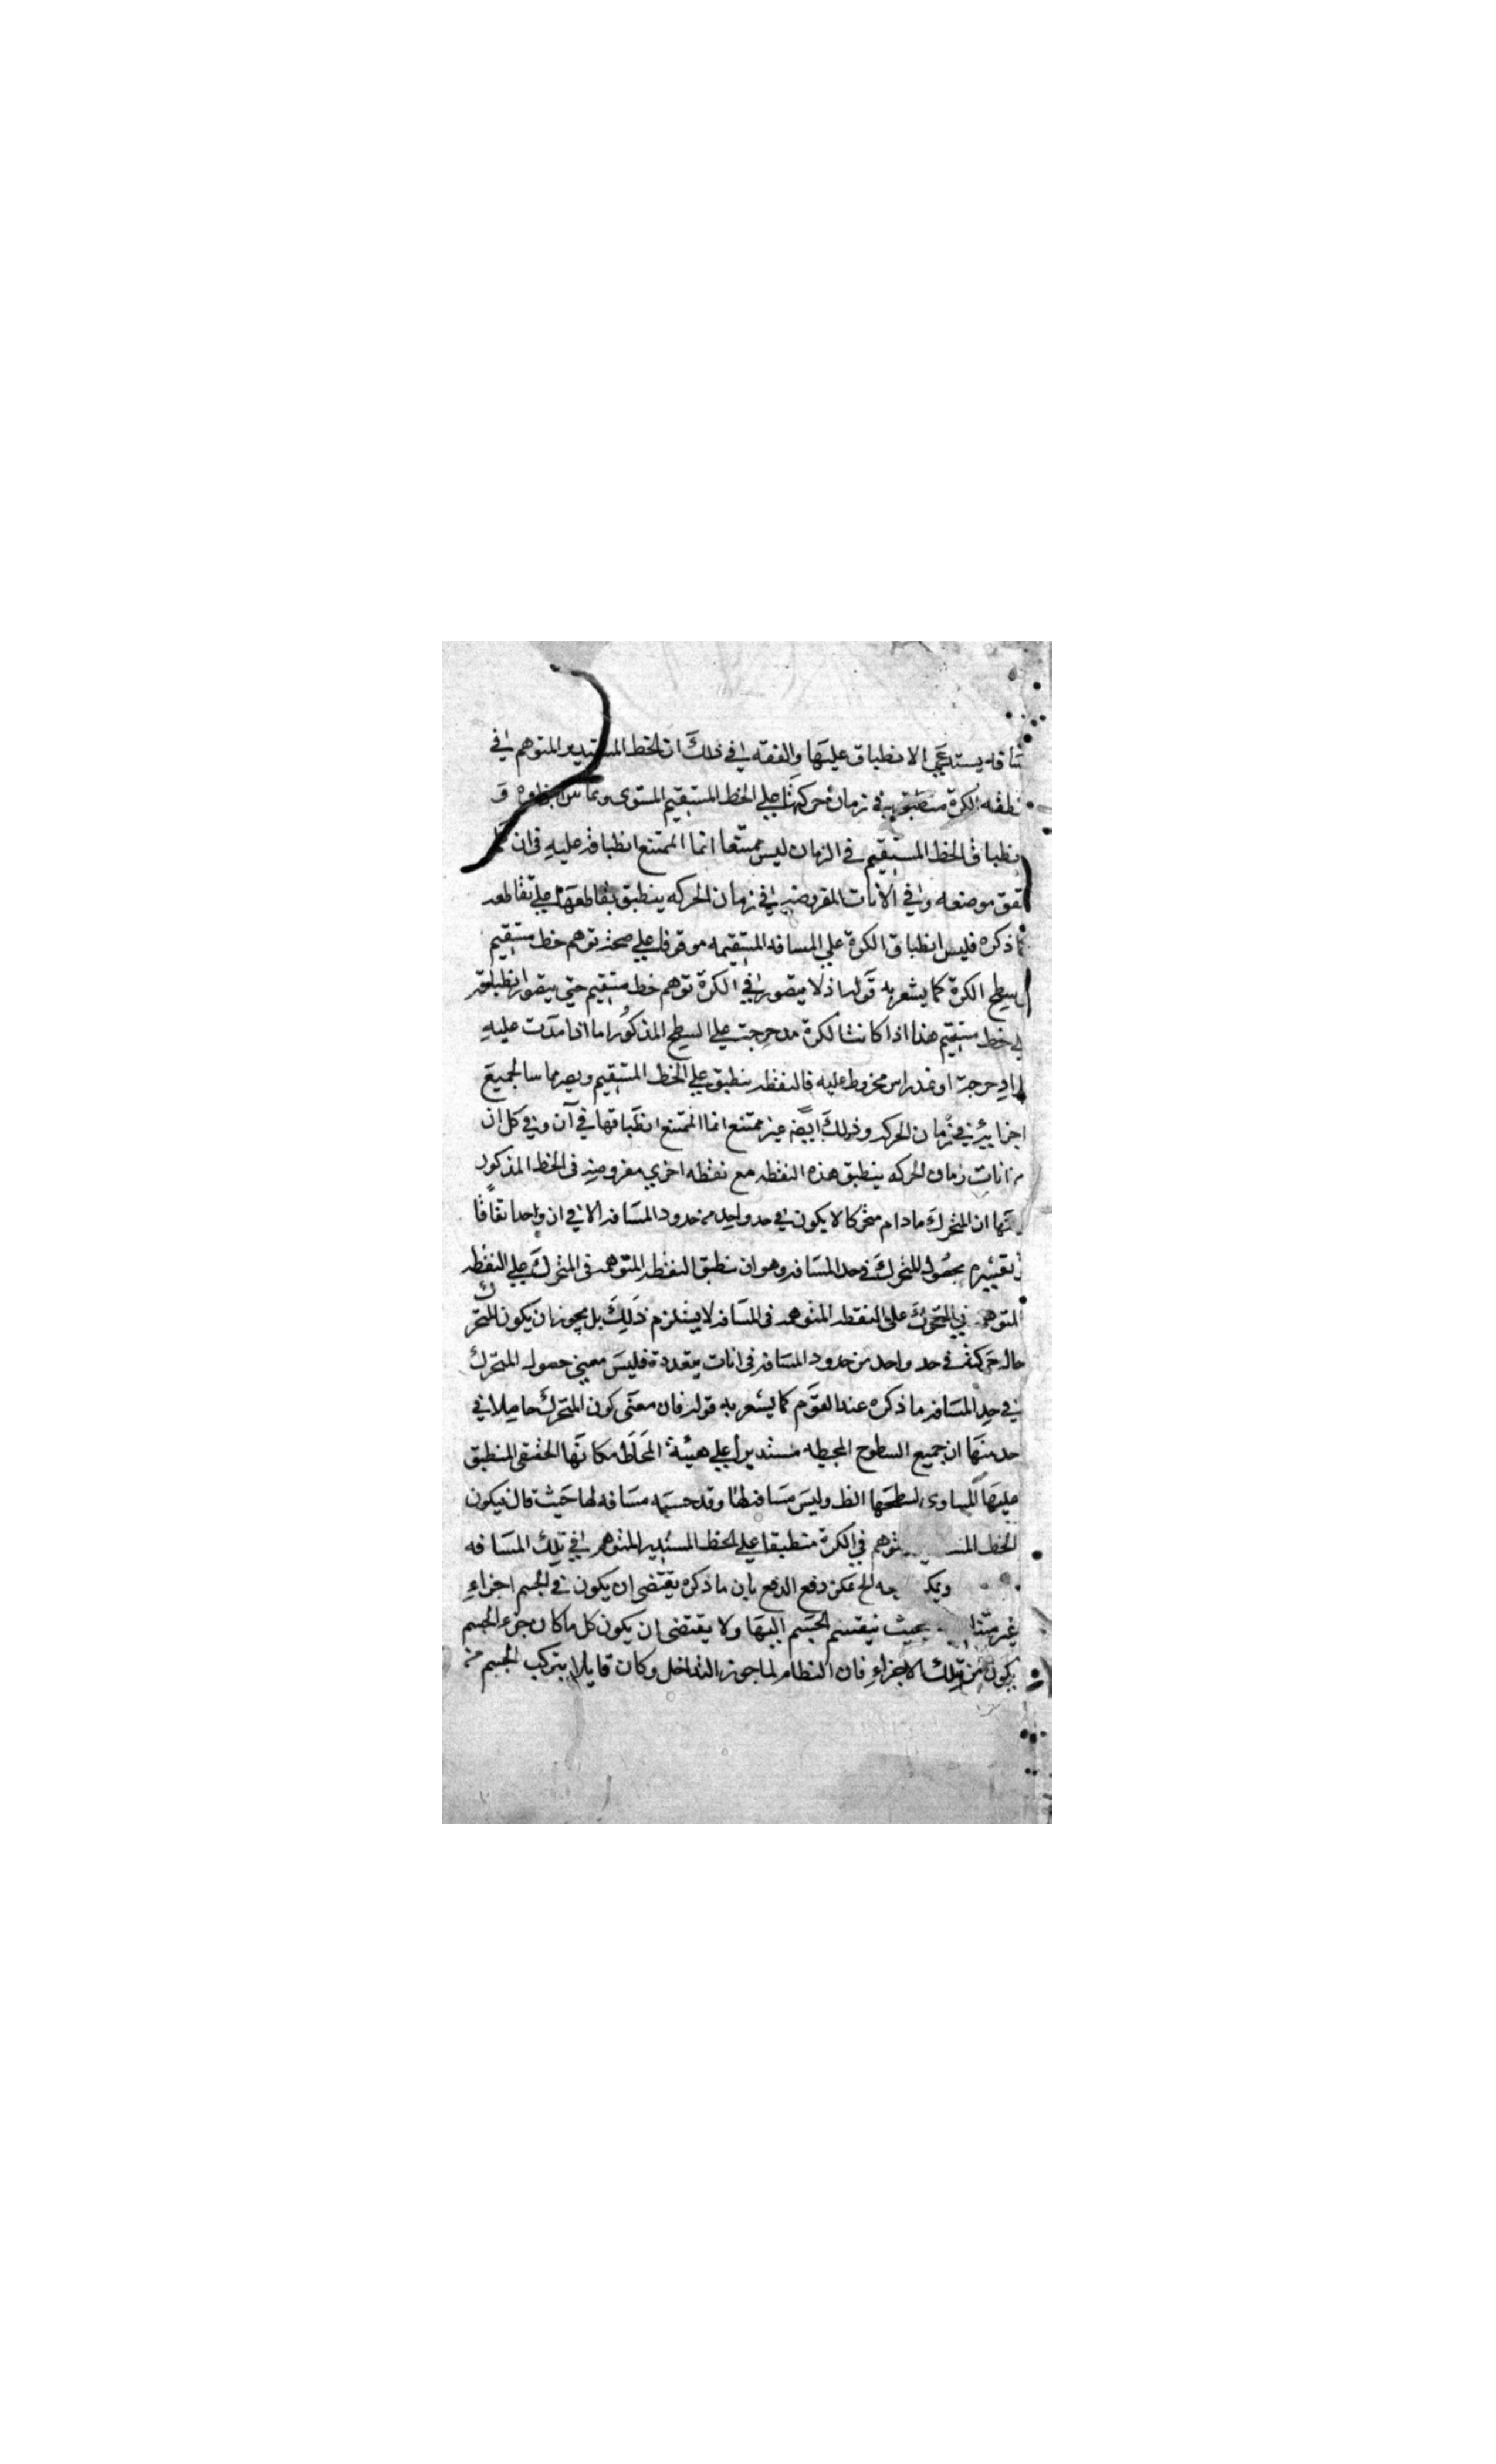 يستدعي الانطباق عليها والفقه في ذلك ان الخط المستدير المتوهم في
الكرة منطبق في زمان حركتها علي الخط المستقيم المستوي
الخط المستقيم في الزمان ليس ممتنعا انما الممتنع انطباقه عليه في ان
موضعه وفي الانات المفروضه في زمان الحركه ينطبق تقاطعها علي تقاطعه
ذكره فليس انطباق الكرة علي المسافه المستقيمه موقوفا علي صحة توهم خط مستقيم
سطح الكرة كما يشعر به قوله اذ لا يتصور في الكرة توهم خط مستقيم حتي يتصور انطباقه
خط مستقيم هذا اذا كانت الكرة مدحرجة علي السطح المذكور اما اذا مدت عليه
دحرجة او راس مخروط عليه فالنقطه ينطبق علي الخط المستقيم ويصير مماسا لجميع
اجزايه في زمان الحركه وذلك ايضه غير ممتنع انما الممتنع انطباقها في آن وفي كل ان
انات زمان الحركه ينطبق هذه النقطه مع نقطه اخري مفروضه في الخط المذكور
ان المتحرك مادام متحركا لا يكون في حد واحد من حدود المسافه الا في ان واحد اتفاقا
تفسيره بحصول المتحرك في حد المسافه وهو ان ينطبق النقطه المتوهمه في المتحرك علي النقطه
في المتحرك علي النقطه المتوهمه في المسافه لا يستلزم ذلك بل يجوز ان يكون المتحرك
حال حركته في حد واحد من حدود المسافه في انات متعددة فليس معني حصول المتحرك
في حد المسافه ما ذكره عند القوم كما يشعر به قوله فان معني كون المتحرك حاصلا في
حد منها ان جميع السطوح المحيطه مستديرا علي هيئة المحاط مكانها الحقيقي المنطبق
عليها المساوي لسطحها وليس مسافه لها وقد مسافه لها حيث قال فيكون
الخط في الكرة منطبقا علي الخط المستدير المتوهم في تلك المسافه
يمكن دفع الدفع بان ما ذكره يقتضي ان يكون في الجسم اجزاء
غير بحيث ينقسم الجسم اليها ولا يقتضي ان يكون كل ما كان جزء الجسم
يكون من تلك الاجزاء فان النظام لما جوز التداخل وكان قايلا بتركب الجسم من